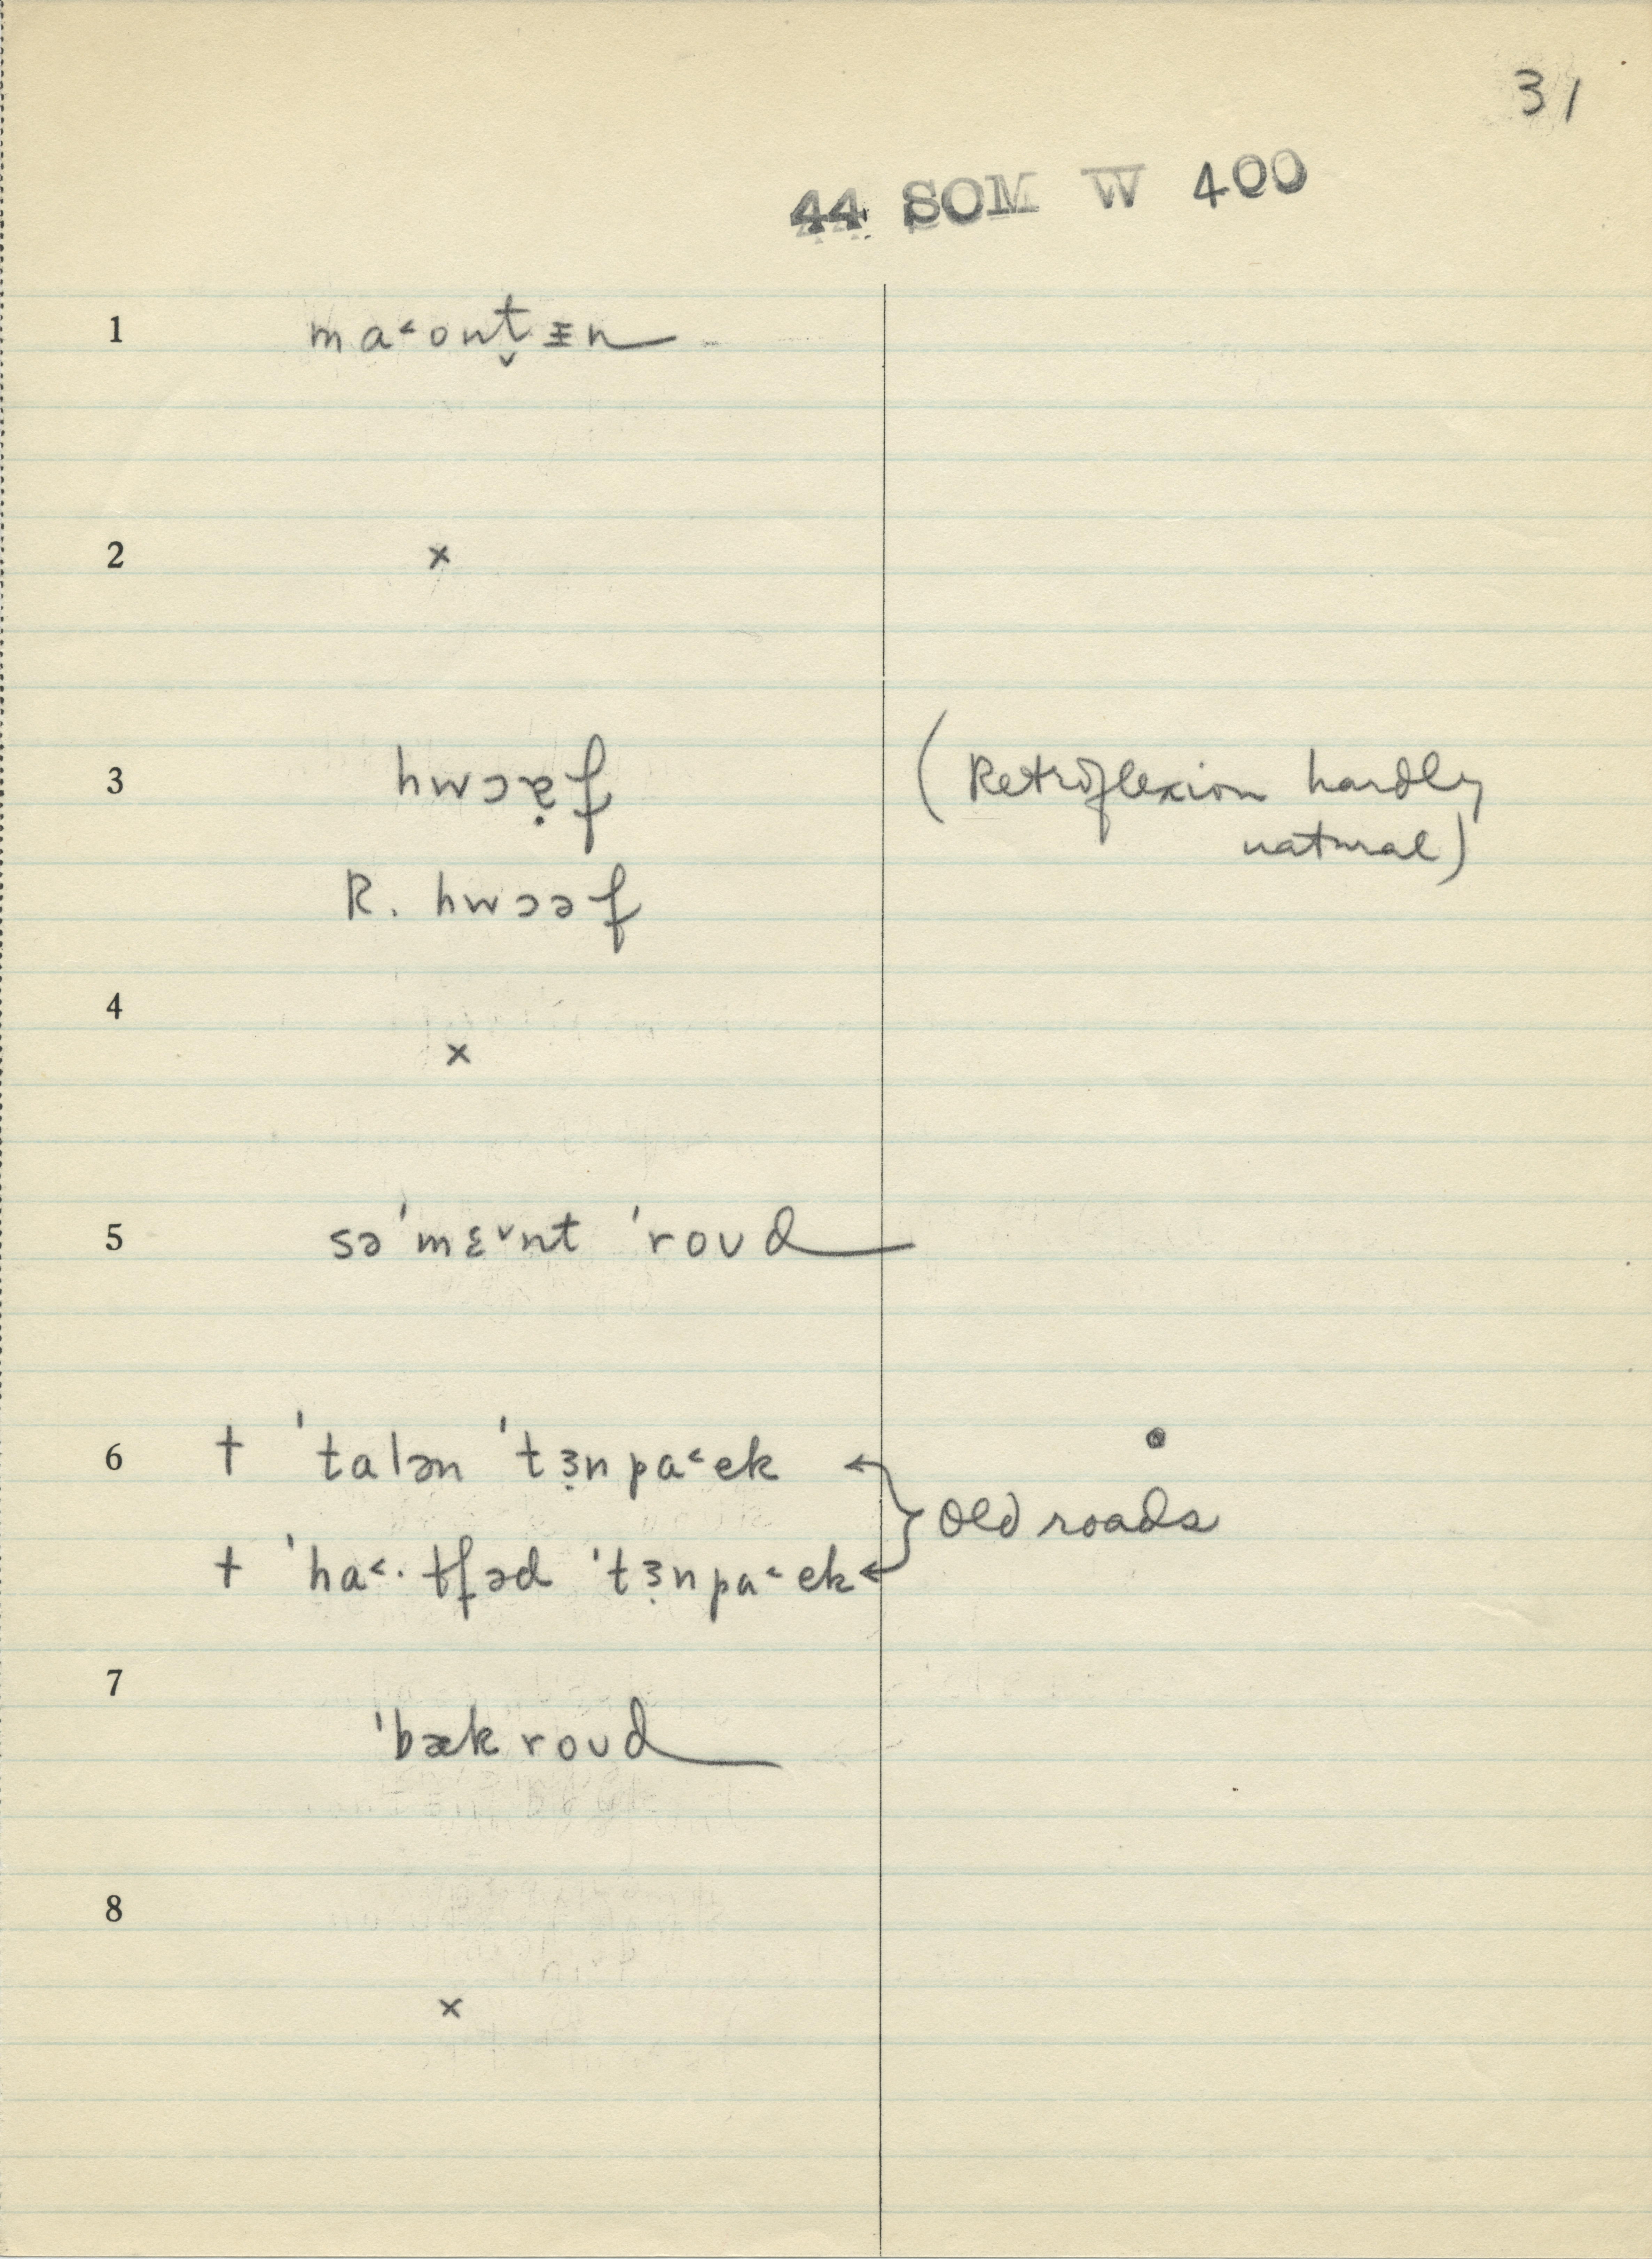 31
44 SOM W 400
1 ma˂ont̬ᵻn
2 ×
3 hwɔə̣f (Retroflexion hardly
natural)
R. hwɔəf
4 ×
5 sə'mɛ˅nt 'roud
6 † 'talən 'tɜ̣npa˂ek
Old roads
† 'ha˂· tʃəd 'tɜ̣npa˂ek
7 'bæk roud
8 ×